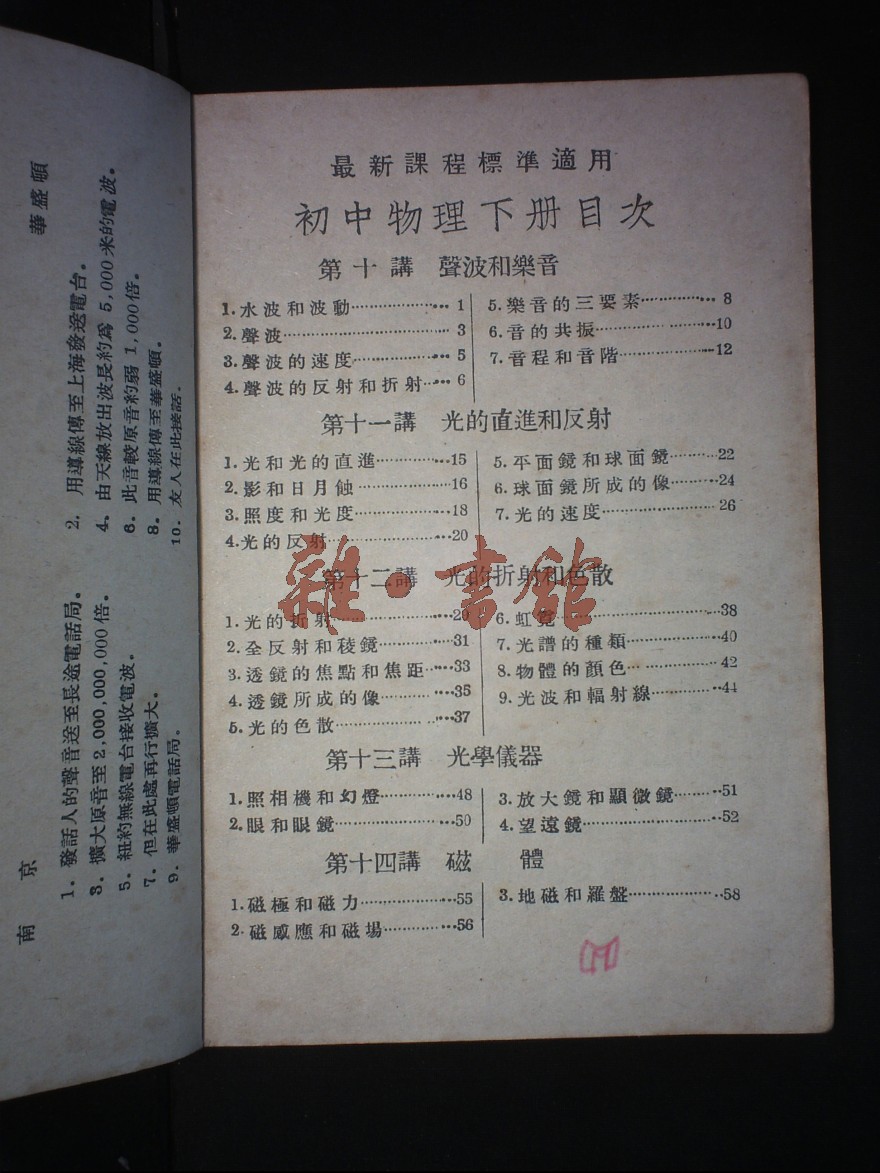 南京
華盛頓
1. 發話人的聲音送至長途電話局。
2. 用導線傳至上海發送電台。
3. 擴大原音至2,000,000,000倍。
4. 由天線放出波長約爲5,000米的電波。
5. 紐約無線電台接收電波。
6. 此音較原音約弱1,000倍。
7. 但在此處再行擴大。
8. 用導線傳至華盛頓。
9. 華盛頓電話局。
10. 友人在此接話.
最新課程標準適用
初中物理下册目次
第十講 聲波和樂音
1.水波和波動………………1
2.聲波………………3
3.聲波的速度………………5
4.聲波的反射和折射……6
5.樂音的三要素……………8
6.音的共振………………10
7.音程和音階……………12
第十一講 光的直進和反射
1.光和光的直進……………15
2.影和日月蝕………………16
3.照度和光度………………18
4.光的反射………………20
5.平面鏡和球面鏡………22
6.球面鏡所成的像………24
7.光的速度………………26
第十二講 光的折射和色散
1.光的折射………………29
2.全反射和稜鏡……………31
3.透鏡的焦點和焦距……33
4.透鏡所成的像……………35
5.光的色散………………37
6.虹霓………………38
7.光譜的種類……………40
8.物體的顏色……………42
9.光波和輻射線…………44
第十三講 光學儀器
1.照相機和幻燈……………48
2.眼和眼鏡………………50
3.放大鏡和顯微鏡………51
4.望遠鏡………………52
第十四講 磁體
1.磁極和磁力………………55
2.磁感應和磁場……………56
3.地磁和羅盤………………58
雜·書館